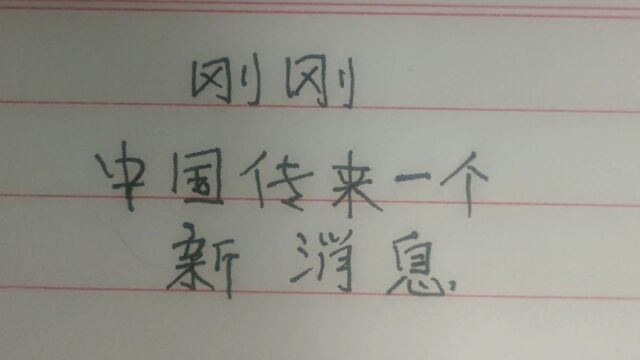 刚刚
中国传来一个
新消息